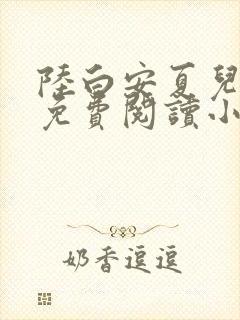 陸白安夏兒
免費閱讀小
奶香逗逗